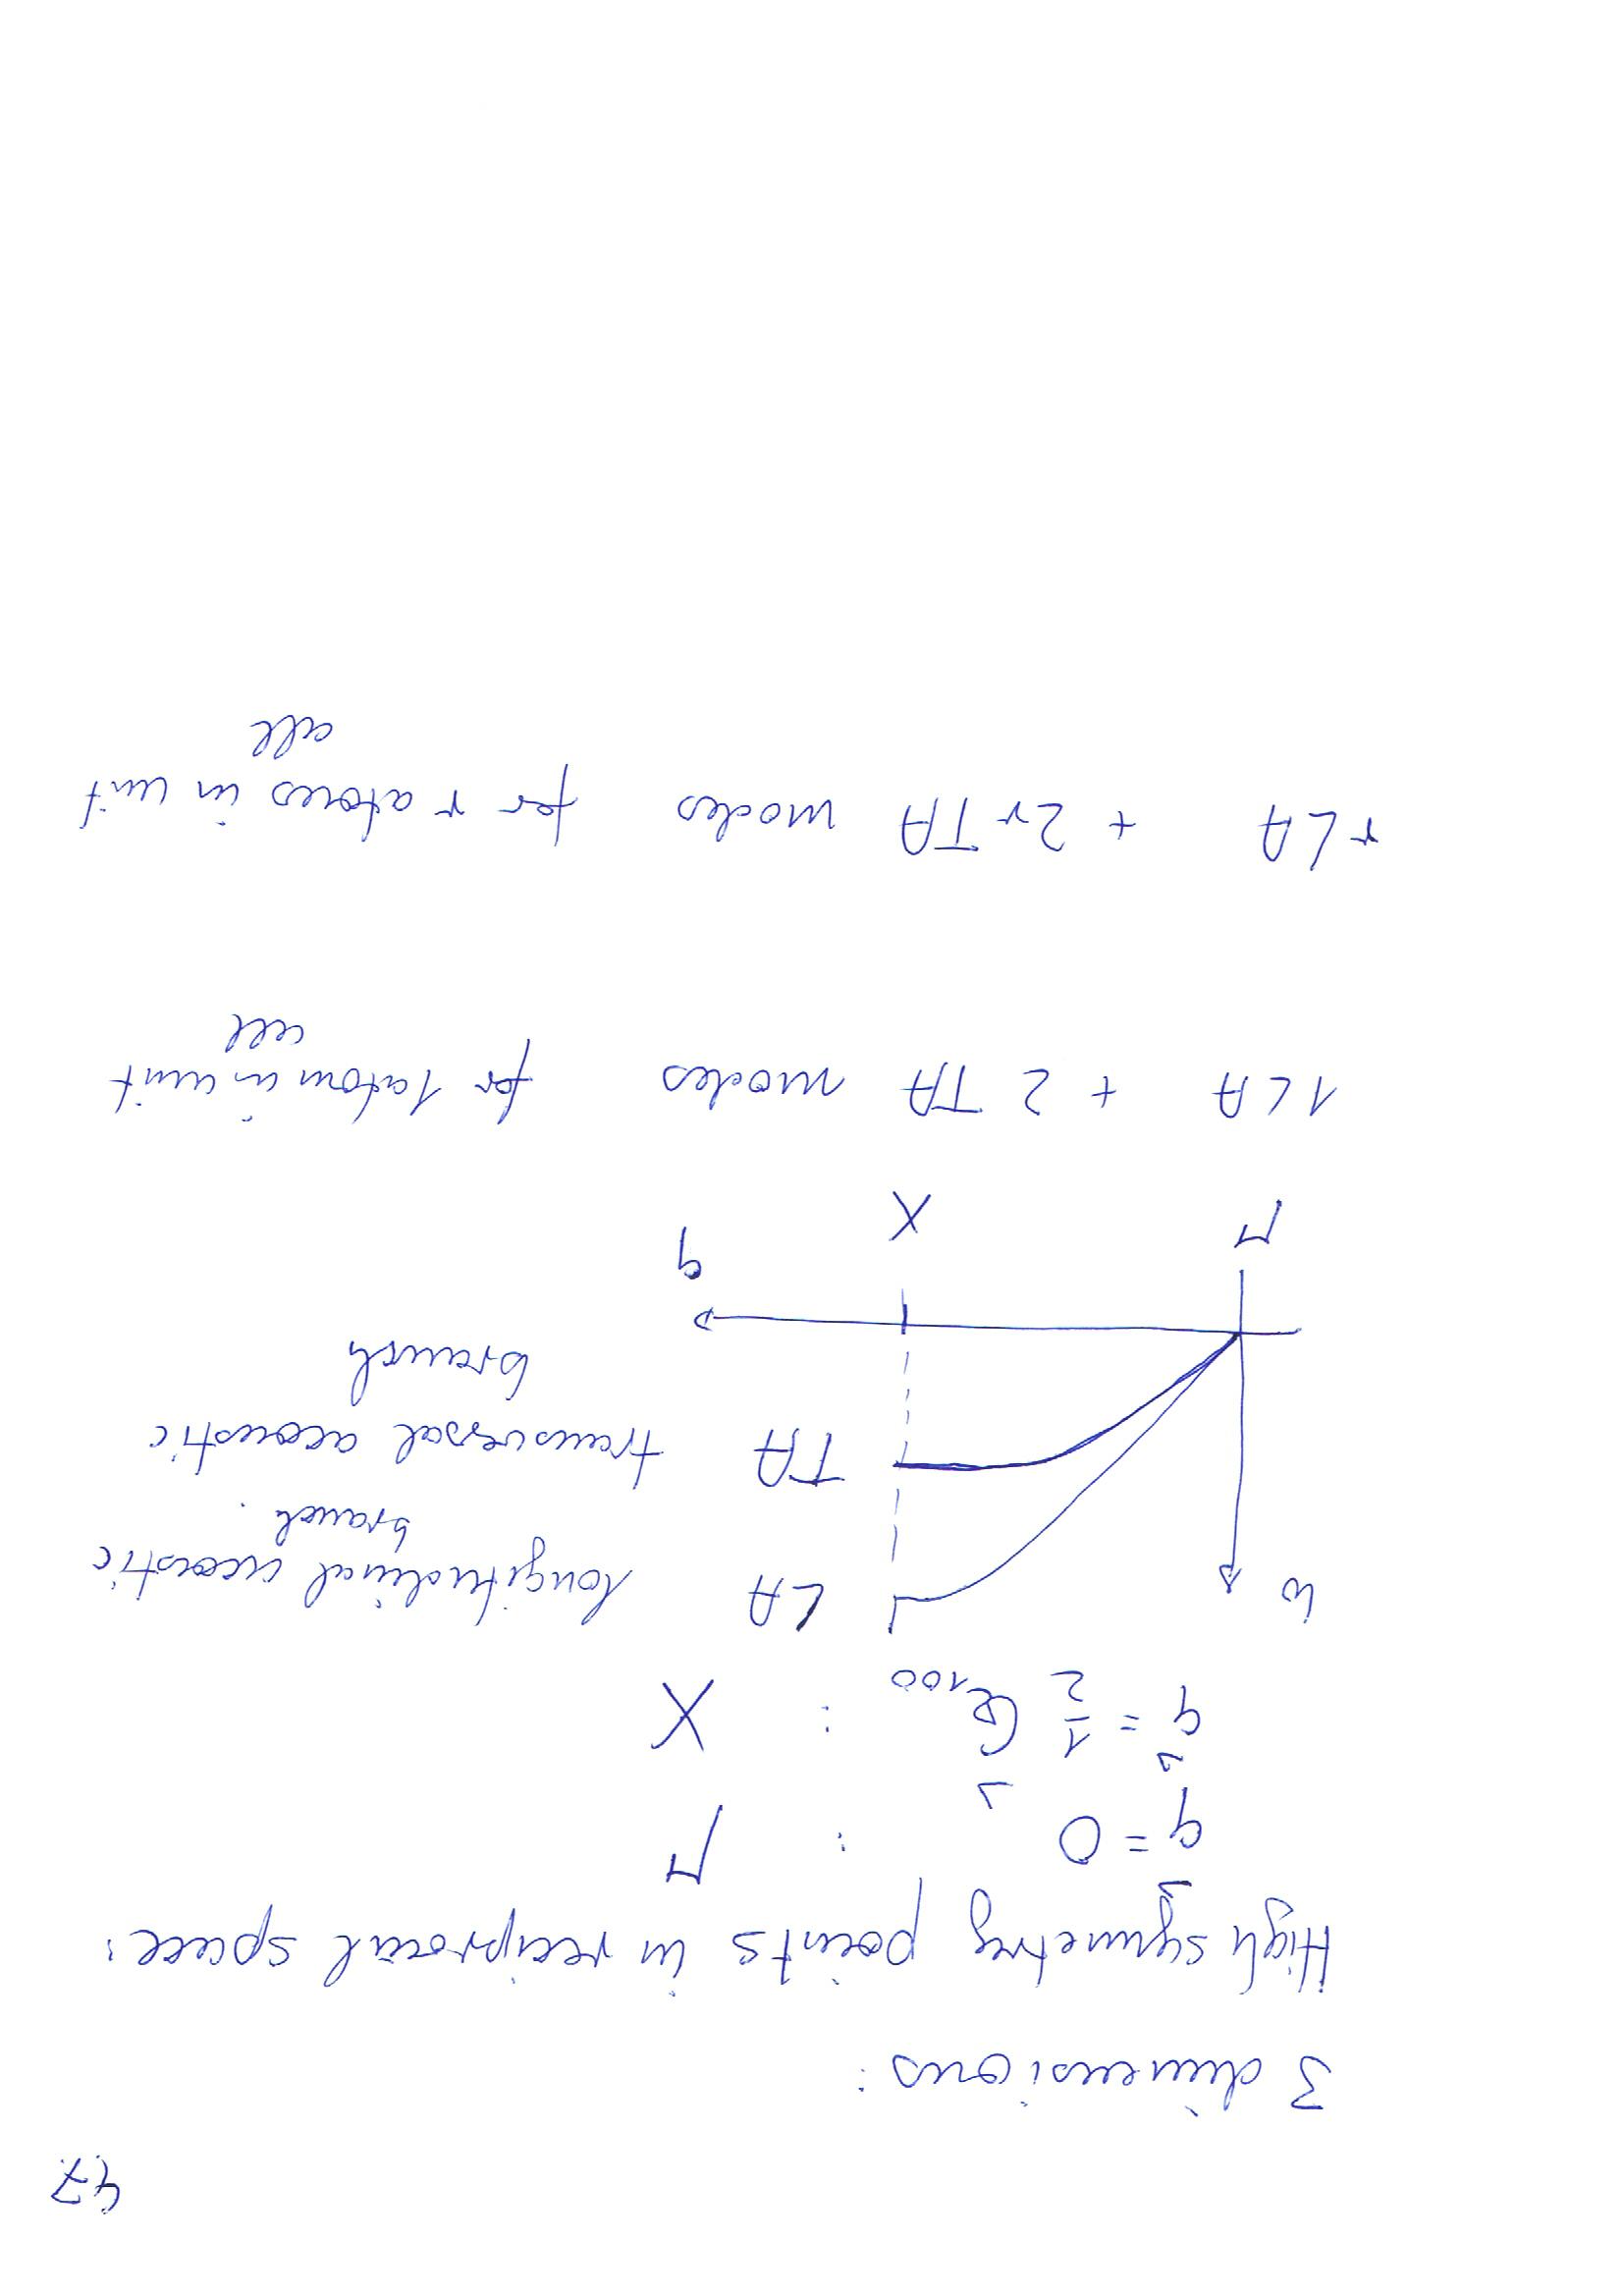 47
3 dimensions:
High symmetry points in reciprocal space:
q = 0 : Γ
q = 1/2 G₁₀₀ : X
ω
LA longitudinal acoustic
branch.
TA transversal acoustic
branch
q
Γ X
1 LA + 2 TA modes for 1 atom in unit
cell
r LA + 2r TA modes for r atoms in unit
cell